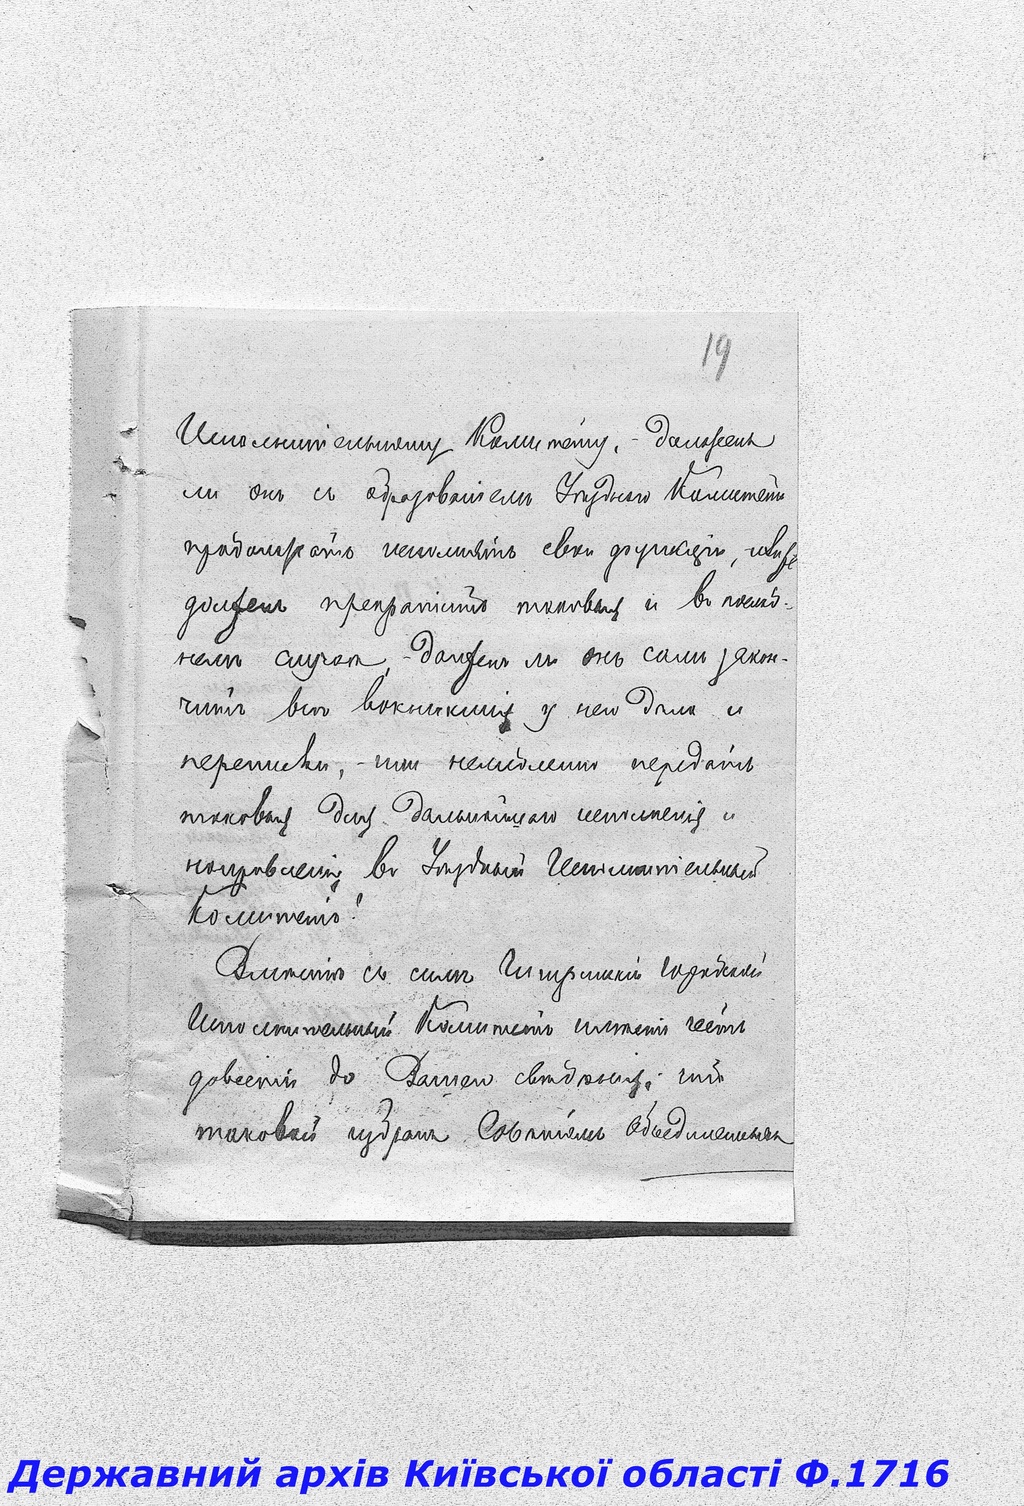 19
Исполнительному Комитету, - долженъ
ли онъ съ образованіемъ Уѣзднаго Комитета
продолжать исполнять свои функціи, или же
долженъ прекратить таковыя и въ послѣд-
немъ случаѣ, - долженъ ли онъ самъ закон-
чить всѣ возникшія у него дѣла и
переписки, - или немедленно передать
таковыя для дальнѣйшаго исполненія и
направленія въ Уѣздный Исполнительный
Комитетъ?
Вмѣстѣ съ симъ Городской
Исполнительный Комитетъ имѣетъ честь
довести до Вашего свѣдѣнія, что
таковой избранъ Совѣтомъ Объединенныхъ
Державний архів Київської області Ф.1716